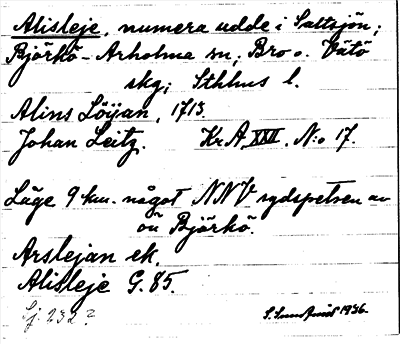 Alisleje, numera udde i Saltsjön;
Björkö-Arholma sn, Bro o. Vätö
skg; Sthlms l.
Alins Löÿan, 1713.
Johan Leitz. Kr.A. XXII. N:o 17.
Läge 9 km. något NNV sydspetsen av
ön Björkö.
Arslejan ek.
Alisleje G. 85.
Sj. 232?
1936.